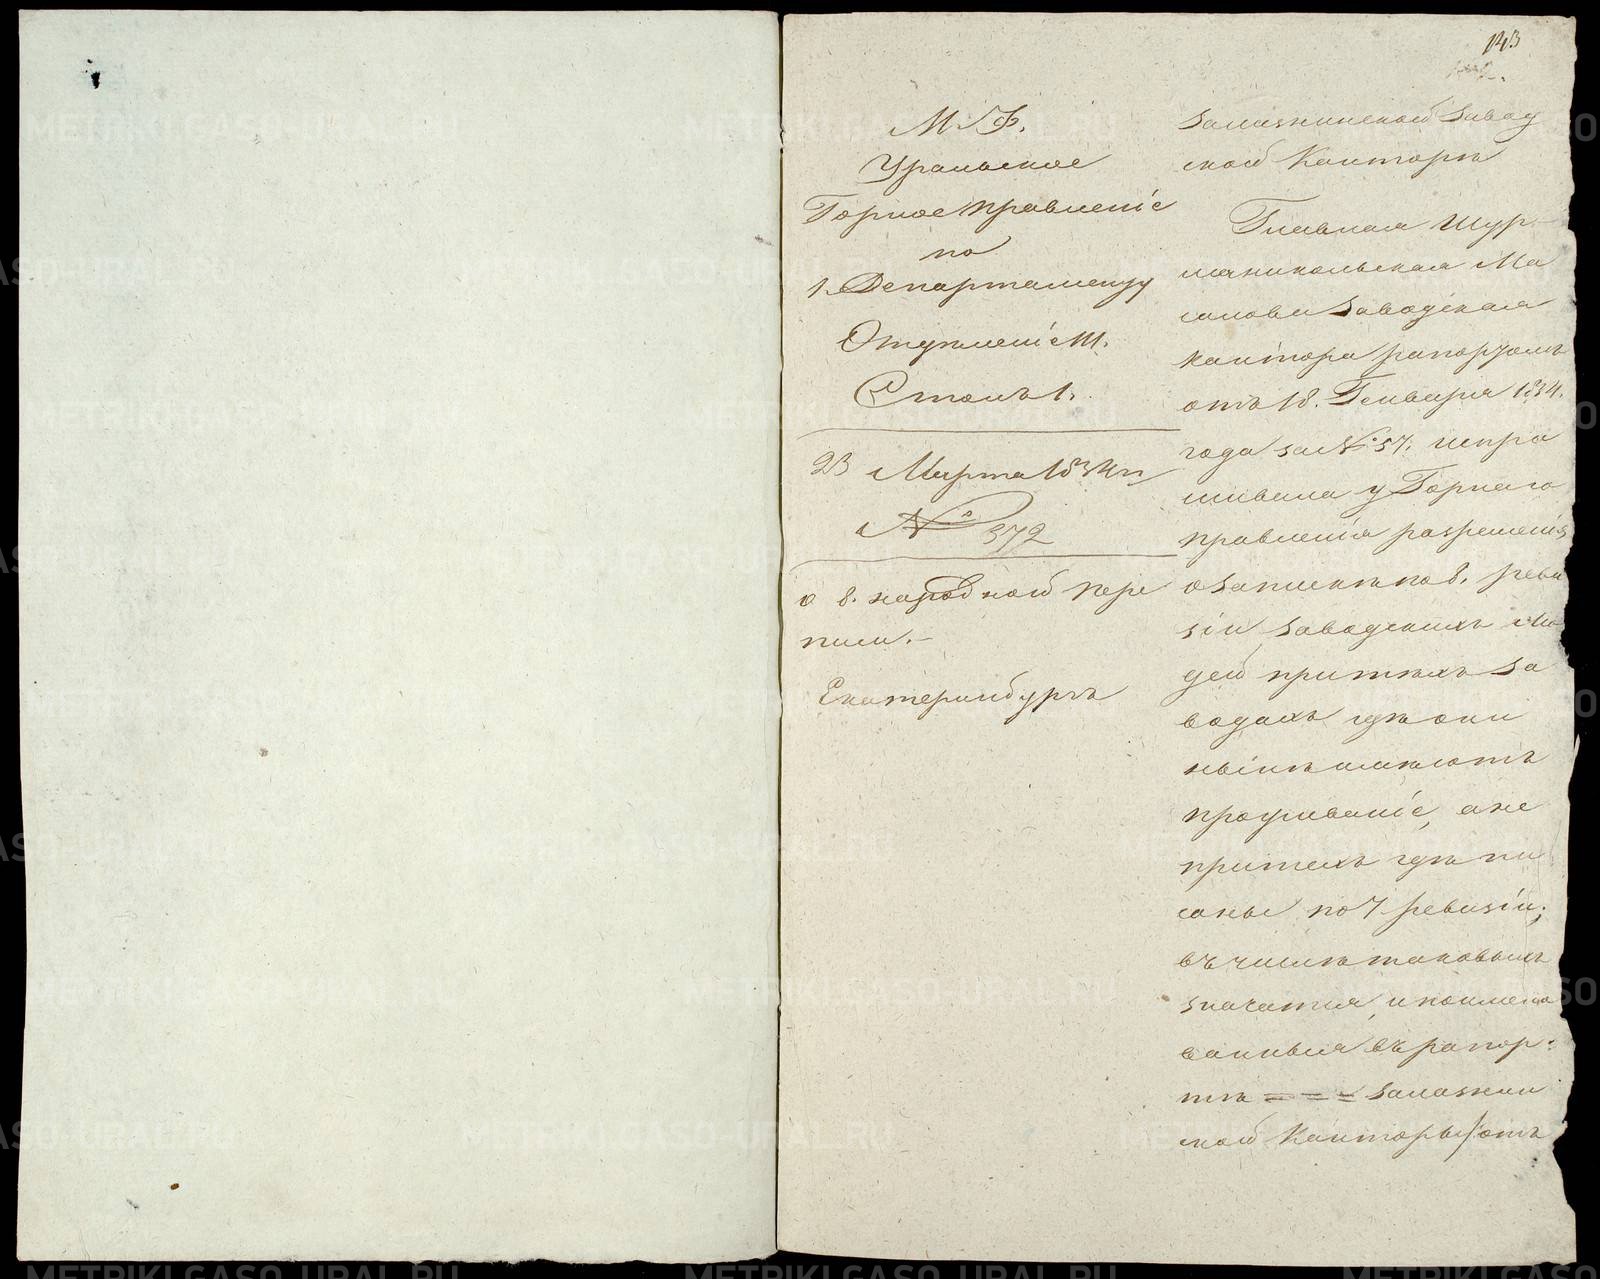 143
М. Ф.
Уральское
Горное правленіе
по
1. Департаменту
Отделеніе III.
Столъ 1.
23 Марта 1834 г
№ 372
о 8. народной пере
писи.-
Екатеринбургъ
Залазнинской Завод
ской Канторѣ
Главная Шур-
маникольская Ма
салова Заводская
кантора рапортомъ
отъ 18. Генваря 1834.
года за № 57. испра
шивала у Горнаго
правленія разрешенія
о Запискѣ по 8. реви
зіи Заводскихъ лю
дей притѣхъ За
водахъ гдѣ они
нынѣ имѣютъ
проживаніе, а не
притехъ гдѣ пи
саны по 7 ревизіи;
въ числѣ таковыхъ
значатся, и поимено
ванныя въ рапор:
тѣ = = = Залазнин
ской Канторы отъ
METRIKI.GASO-URAL.RU